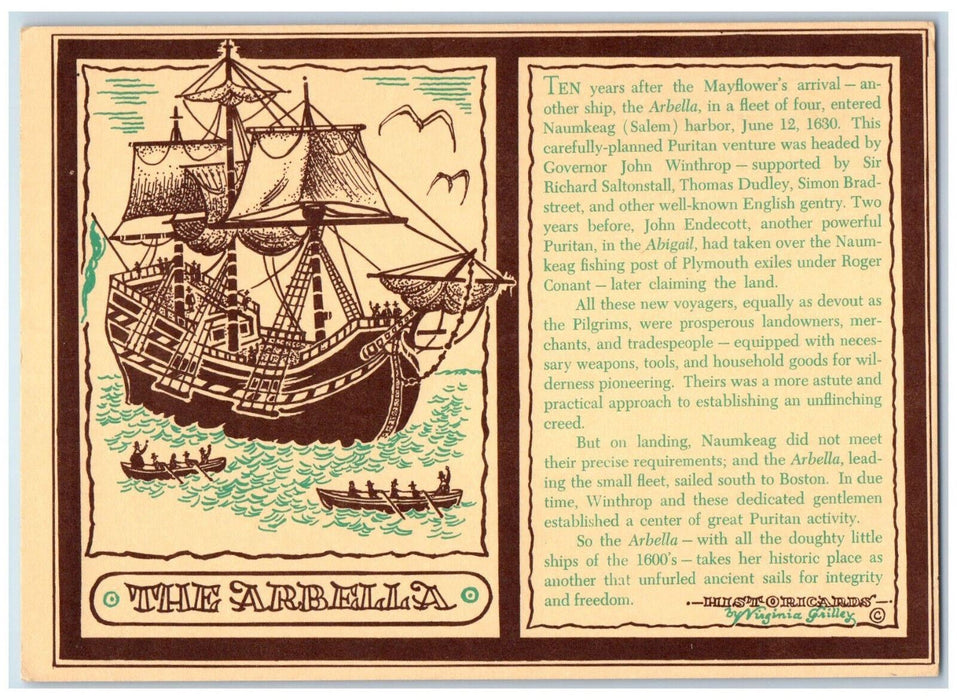 THE ARBELLA
TEN years after the Mayflower's arrival — an-
other ship, the Arbella, in a fleet of four, entered
Naumkeag (Salem) harbor, June 12, 1630. This
carefully-planned Puritan venture was headed by
Governor John Winthrop — supported by Sir
Richard Saltonstall, Thomas Dudley, Simon Brad-
street, and other well-known English gentry. Two
years before, John Endecott, another powerful
Puritan, in the Abigail, had taken over the Naum-
keag fishing post of Plymouth exiles under Roger
Conant — later claiming the land.
All these new voyagers, equally as devout as
the Pilgrims, were prosperous landowners, mer-
chants, and tradespeople — equipped with neces-
sary weapons, tools, and household goods for wil-
derness pioneering. Theirs was a more astute and
practical approach to establishing an unflinching
creed.
But on landing, Naumkeag did not meet
their precise requirements; and the Arbella, lead-
ing the small fleet, sailed south to Boston. In due
time, Winthrop and these dedicated gentlemen
established a center of great Puritan activity.
So the Arbella — with all the doughty little
ships of the 1600's — takes her historic place as
another that unfurled ancient sails for integrity
and freedom.
HISTORICARDS
by Virginia Grilley ©